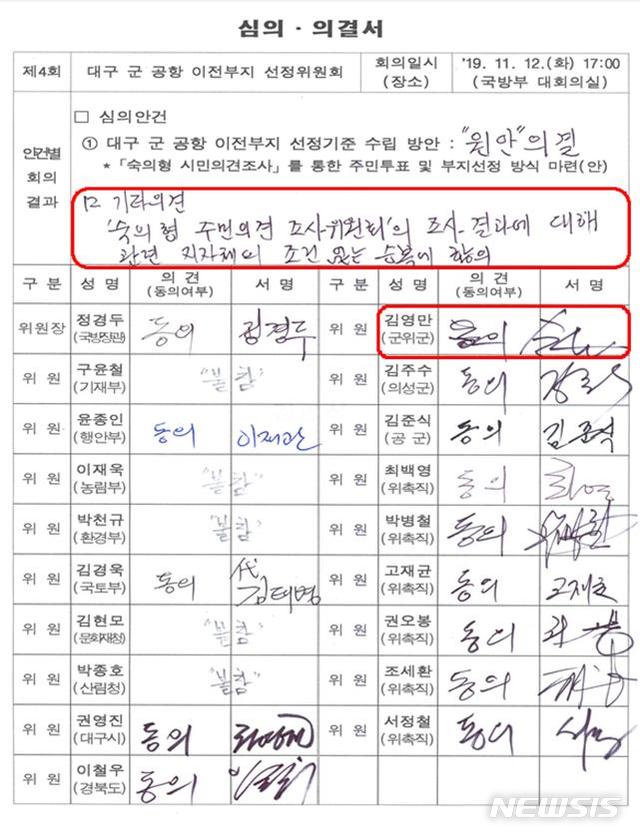 심의 · 의결서
제4회 대구 군 공항 이전부지 선정위원회 회의일시 (장소) '19. 11. 12.(화) 17:00 (국방부 대회의실)
안건별 회의 결과
□ 심의안건
① 대구 군 공항 이전부지 선정기준 수립 방안 : "원안" 의결
* 「숙의형 시민의견조사」를 통한 주민투표 및 부지선정 방식 마련(안)
□ 기타의견
'숙의형 주민의견 조사위원회'의 조사 결과에 대해
관련 지자체의 조건 없는 승복에 합의
구 분 성 명 의 견 (동의여부) 서 명 구 분 성 명 의 견 (동의여부) 서 명
위원장 정경두 (국방장관) 동의 정경두 위 원 김영만 (군위군) 동의
위 원 구윤철 (기재부) "불참" 위 원 김주수 (의성군) 동의
위 원 윤종인 (행안부) 동의 이재관 위 원 김준식 (공 군) 동의 김준식
위 원 이재욱 (농림부) "불참" 위 원 최백영 (위촉직) 동의
위 원 박천규 (환경부) "불참" 위 원 박병철 (위촉직) 동의
위 원 김경욱 (국토부) 동의 代 김태병 위 원 고재균 (위촉직) 동의
위 원 김현모 (문화재청) "불참" 위 원 권오봉 (위촉직) 동의
위 원 박종호 (산림청) "불참" 위 원 조세환 (위촉직) 동의
위 원 권영진 (대구시) 동의 위 원 서정철 (위촉직) 동의
위 원 이철우 (경북도) 동의
NEWSIS